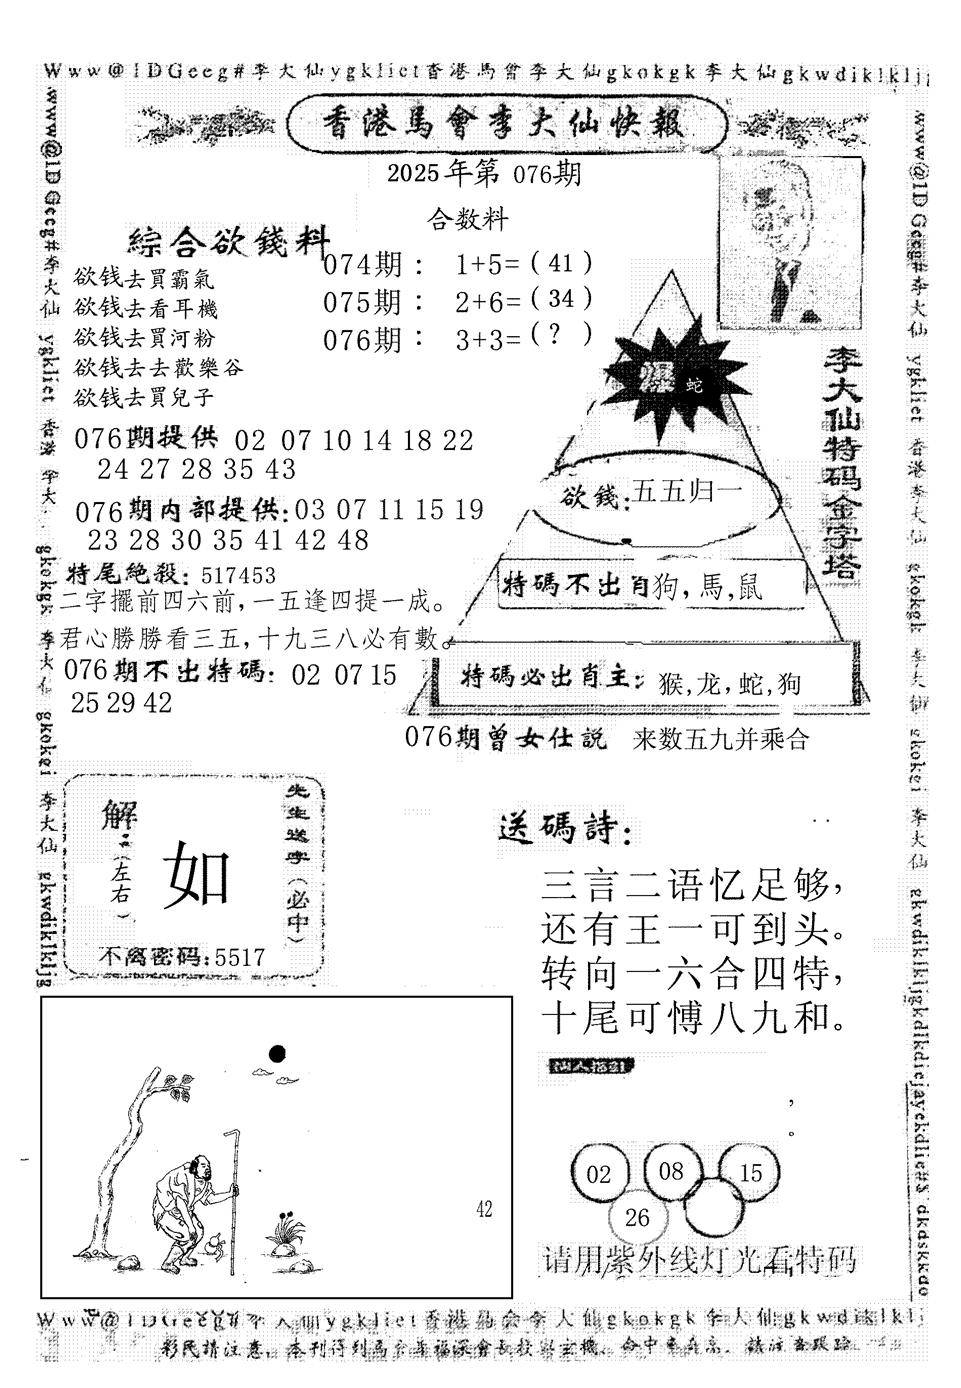 Www@1DGeeg#李大仙ygkliet香港馬會李大仙gkokgk李大仙gkwdiklkljg
香港馬會李大仙快報
2025年第 076期
合数料
綜合欲錢料
欲钱去買霸氣
欲钱去看耳機
欲钱去買河粉
欲钱去去歡樂谷
欲钱去買兒子
074期： 1+5=（41）
075期： 2+6=（34）
076期： 3+3=（?）
076期提供 02 07 10 14 18 22
24 27 28 35 43
076期内部提供:03 07 11 15 19
23 28 30 35 41 42 48
特尾絶殺: 517453
二字擺前四六前,一五逢四提一成。
君心勝勝看三五,十九三八必有數。
076期不出特碼: 02 07 15
25 29 42
李大仙特码金字塔
爆 蛇
欲錢:五五归一
特碼不出肖狗,馬,鼠
特碼必出肖主: 猴,龙,蛇,狗
076期曾女仕説 来数五九并乘合
解:(左右)
如
先生送字(必中)
不离密码:5517
送碼詩:
三言二语忆足够,
还有王一可到头。
转向一六合四特,
十尾可愽八九和。
,
。
42
02 08 15
26
请用紫外线灯光看特码
Www@1DGeeg#李大仙ygkliet香港馬会李大仙gkokgk李大仙gkwdiklklj
彩民請注意,本刊得到馬会